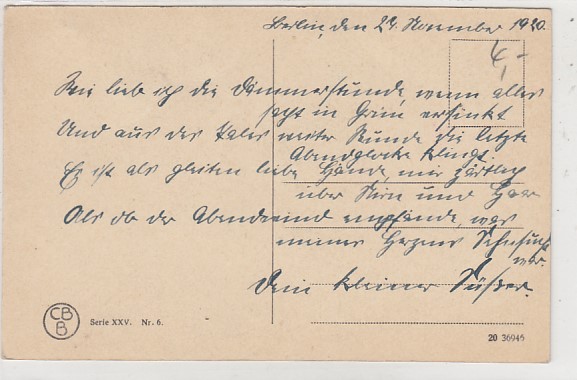 Berlin, den 24. November 1920.
4,-
Wie lieb ich die Dämmerstunde, wenn alles
sacht in Grau versinket
Und aus des Tales weiter Runde die letzte
Abendglocke klingt.
Es ist als gleiten liebe Hände, mir zärtlich
über Stirn und Haar
Als ob der Abendwind empfände, was
meines Herzens Sehnsucht
war.
Dein kleiner Süßer.
CB
B
Serie XXV. Nr. 6.
20 36945